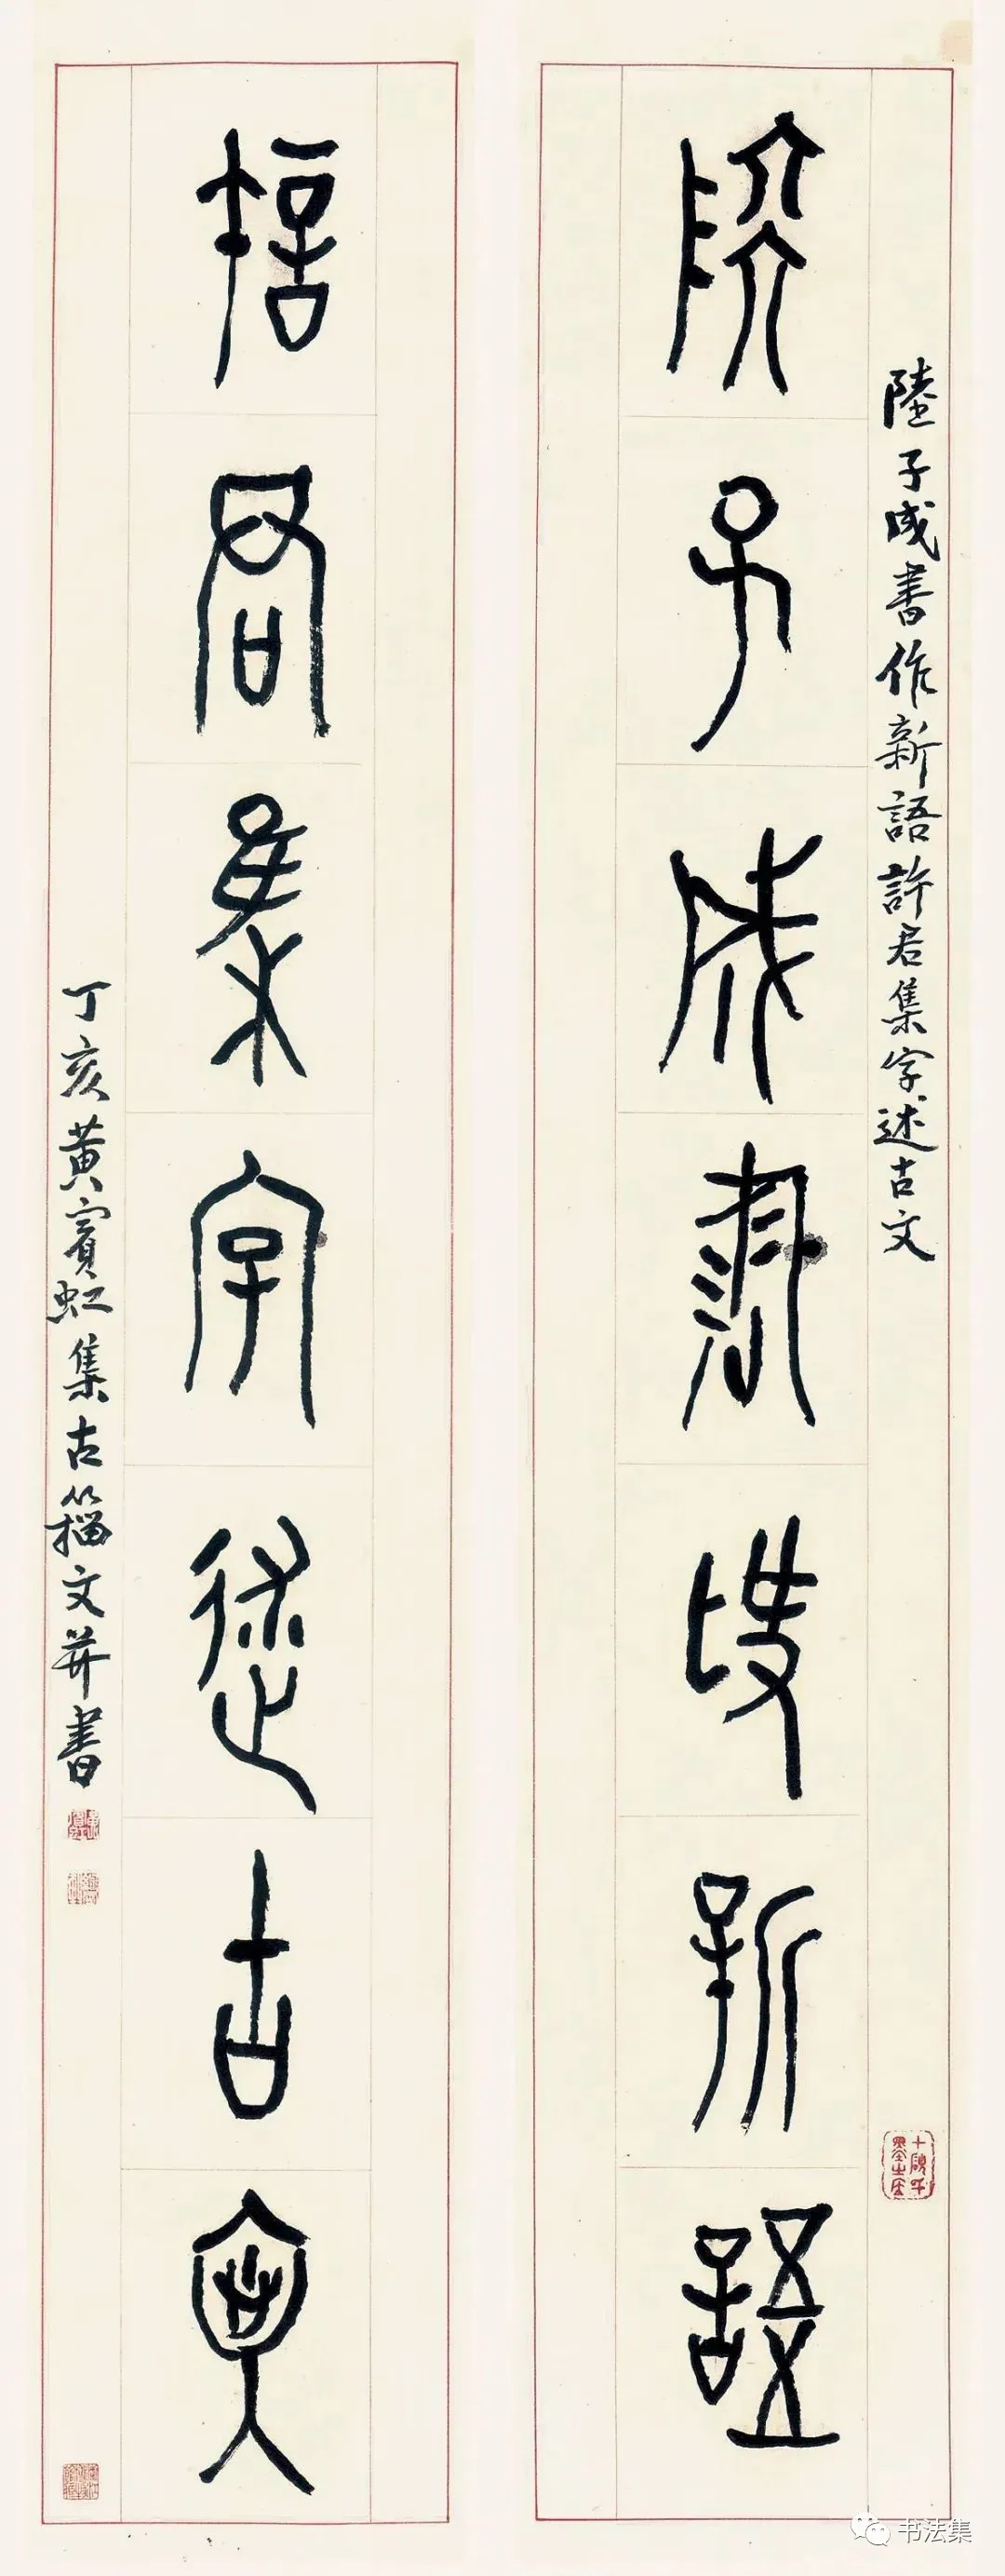 陸子成書作新語許君集字述古文
十硯千墨之居
陸子成書作新語
許君集字述古文
丁亥黃賓虹集古籀文并書
书法集